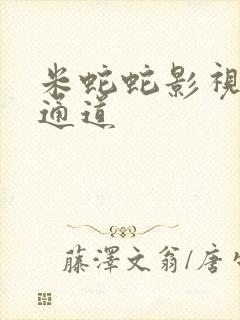 米蛇蛇影視
通道
藤澤文翁/唐